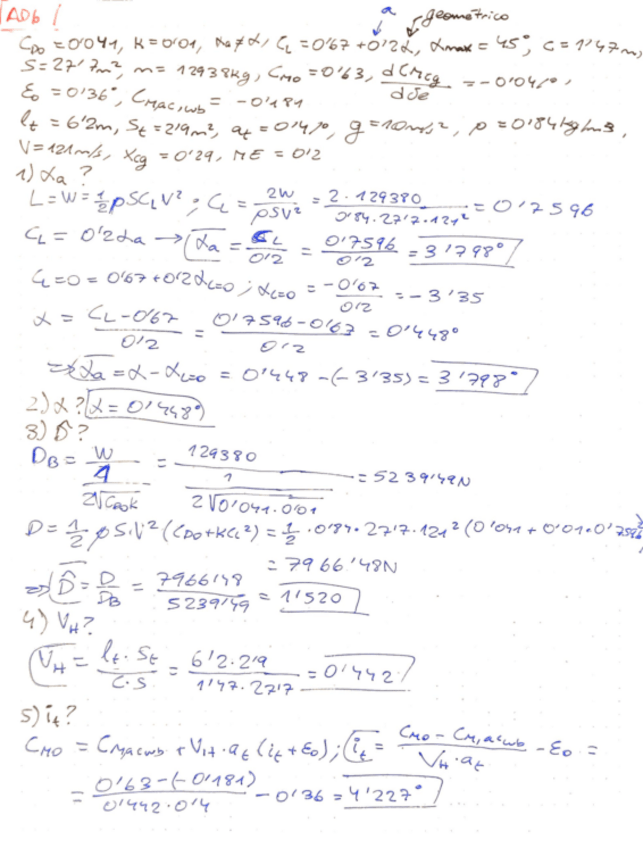 ADb
a geométrico
CD0 = 0'041, K = 0'01, αa ≠ α, CL = 0'67 + 0'2α, αmax = 45°, c = 1'47m,
S = 27'7m², m = 12938kg, CM0 = 0'63, dCMcg/dδe = -0'04/°,
ε0 = 0'36°, CMac,wb = -0'181
lt = 6'2m, St = 2'9m², at = 0'4/°, g = 10m/s², ρ = 0'84kg/m3,
V = 121m/s, Xcg = 0'29, ME = 0'2
1) αa ?
L = W = 1/2 ρSCLV² ; CL = 2W/ρSV² = 2·129380/0'84·27'7·121² = 0'7596
CL = 0'2αa → αa = CL/0'2 = 0'7596/0'2 = 3'798°
CL = 0 = 0'67 + 0'2αL=0 ; αL=0 = -0'67/0'2 = -3'35
α = CL-0'67/0'2 = 0'7596-0'67/0'2 = 0'448°
⇒ αa = α - αL=0 = 0'448 - (-3'35) = 3'798°
2) α? α = 0'448°
3) D̂?
DB = W/1/2√CD0K = 129380/1/2√0'041·0'01 = 5239'49N
D = 1/2 ρS·V² (CD0 + KCL²) = 1/2 · 0'84 · 27'7 · 121² (0'041 + 0'01 · 0'7596²)
= 7966'48N
⇒ D̂ = D/DB = 7966'48/5239'49 = 1'520
4) VH?
VH = lt · St/c · S = 6'2 · 2'9/1'47 · 27'7 = 0'442
5) it?
CM0 = CMacwb + VH · at (it + ε0) ; it = CM0 - CM,acwb/VH · at - ε0 =
= 0'63 - (-0'181)/0'442 · 0'4 - 0'36 = 4'227°